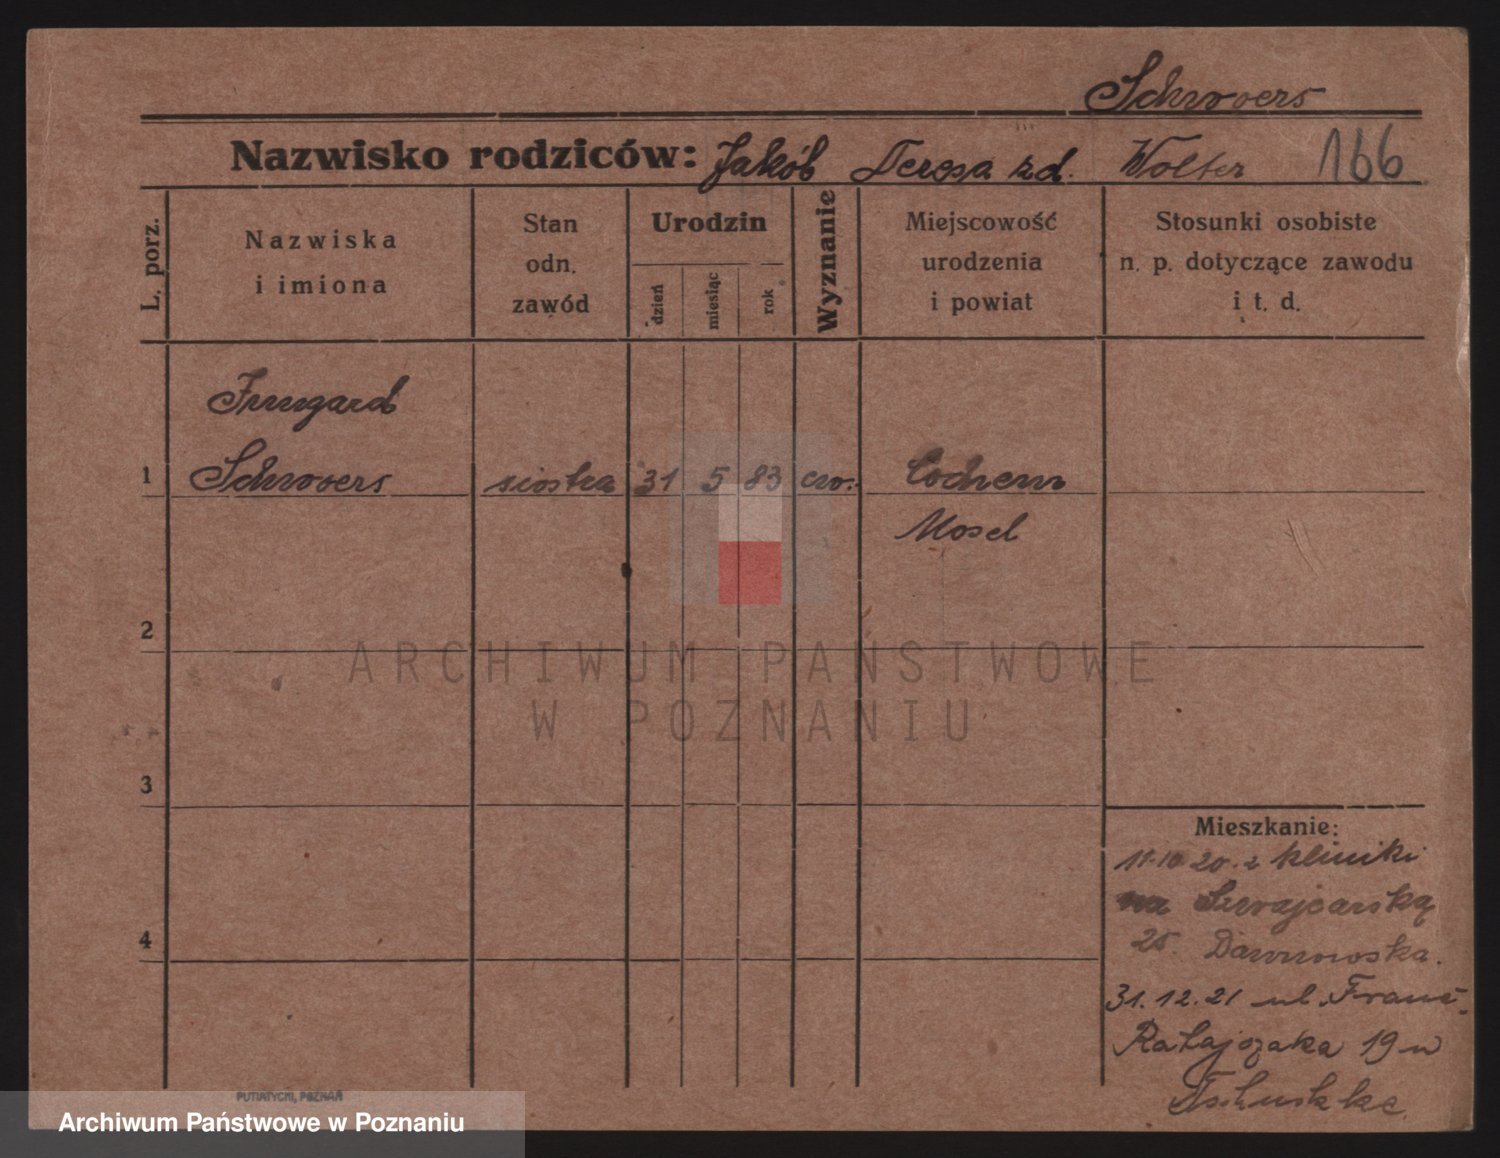 Schroers
Nazwisko rodziców: Jakób Teresa zd. Wolter 166
L. porz.
Nazwiska
i imiona
Stan
odn.
zawód
Urodzin
dzień
miesiąc
rok
Wyznanie
Miejscowość
urodzenia
i powiat
Stosunki osobiste
n. p. dotyczące zawodu
i t. d.
Irmgard
1 Schroers siostra 31 5 83 ew. Cochem
Mosel
2
ARCHIWUM PAŃSTWOWE
W POZNANIU
3
Mieszkanie:
11.10.20. z kliniki
na Szwajcarską
4
25. Dawrowska.
31.12.21 ul. Franc.
Ratajczaka 19 u
PUTIATYCKI, POZNAŃ
Archiwum Państwowe w Poznaniu